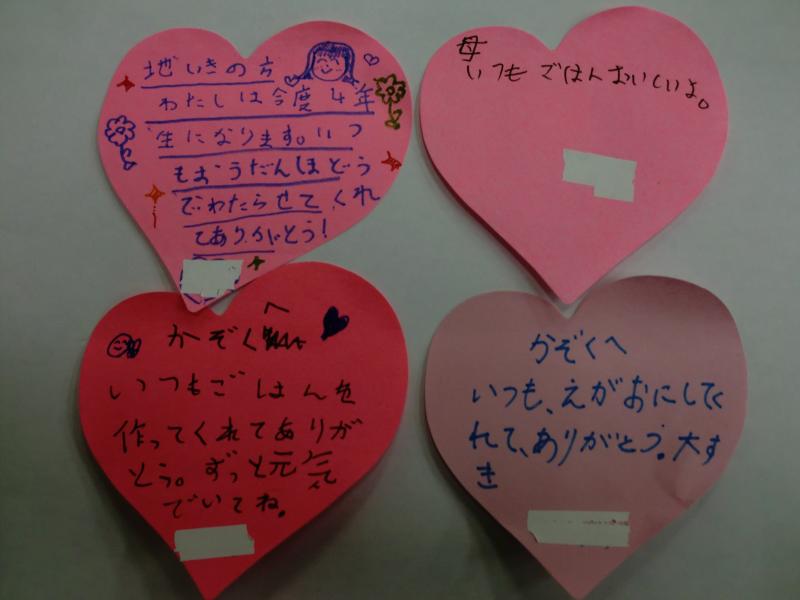 地いきの方
わたしは今度4年
生になります。いつ
もおうだんほどう
でわたらせてくれ
てありがとう!
母
いつもごはんおいしいよ。
かぞくへ
いつもごはんを
作ってくれてありが
とう。ずっと元気
でいてね。
かぞくへ
いつも、えがおにしてく
れて、ありがとう。大す
き